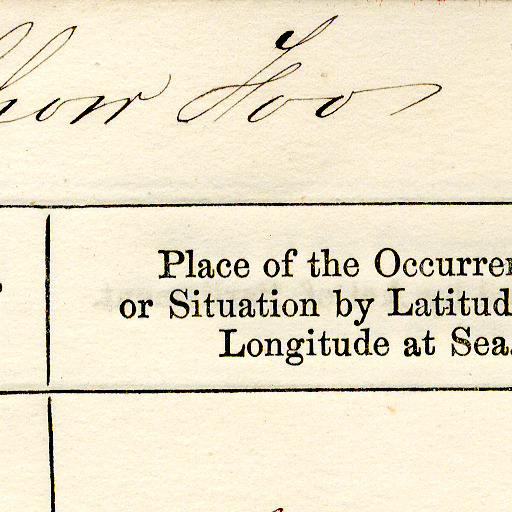 how Foo
Place of the Occurren
or Situation by Latitud
Longitude at Sea.